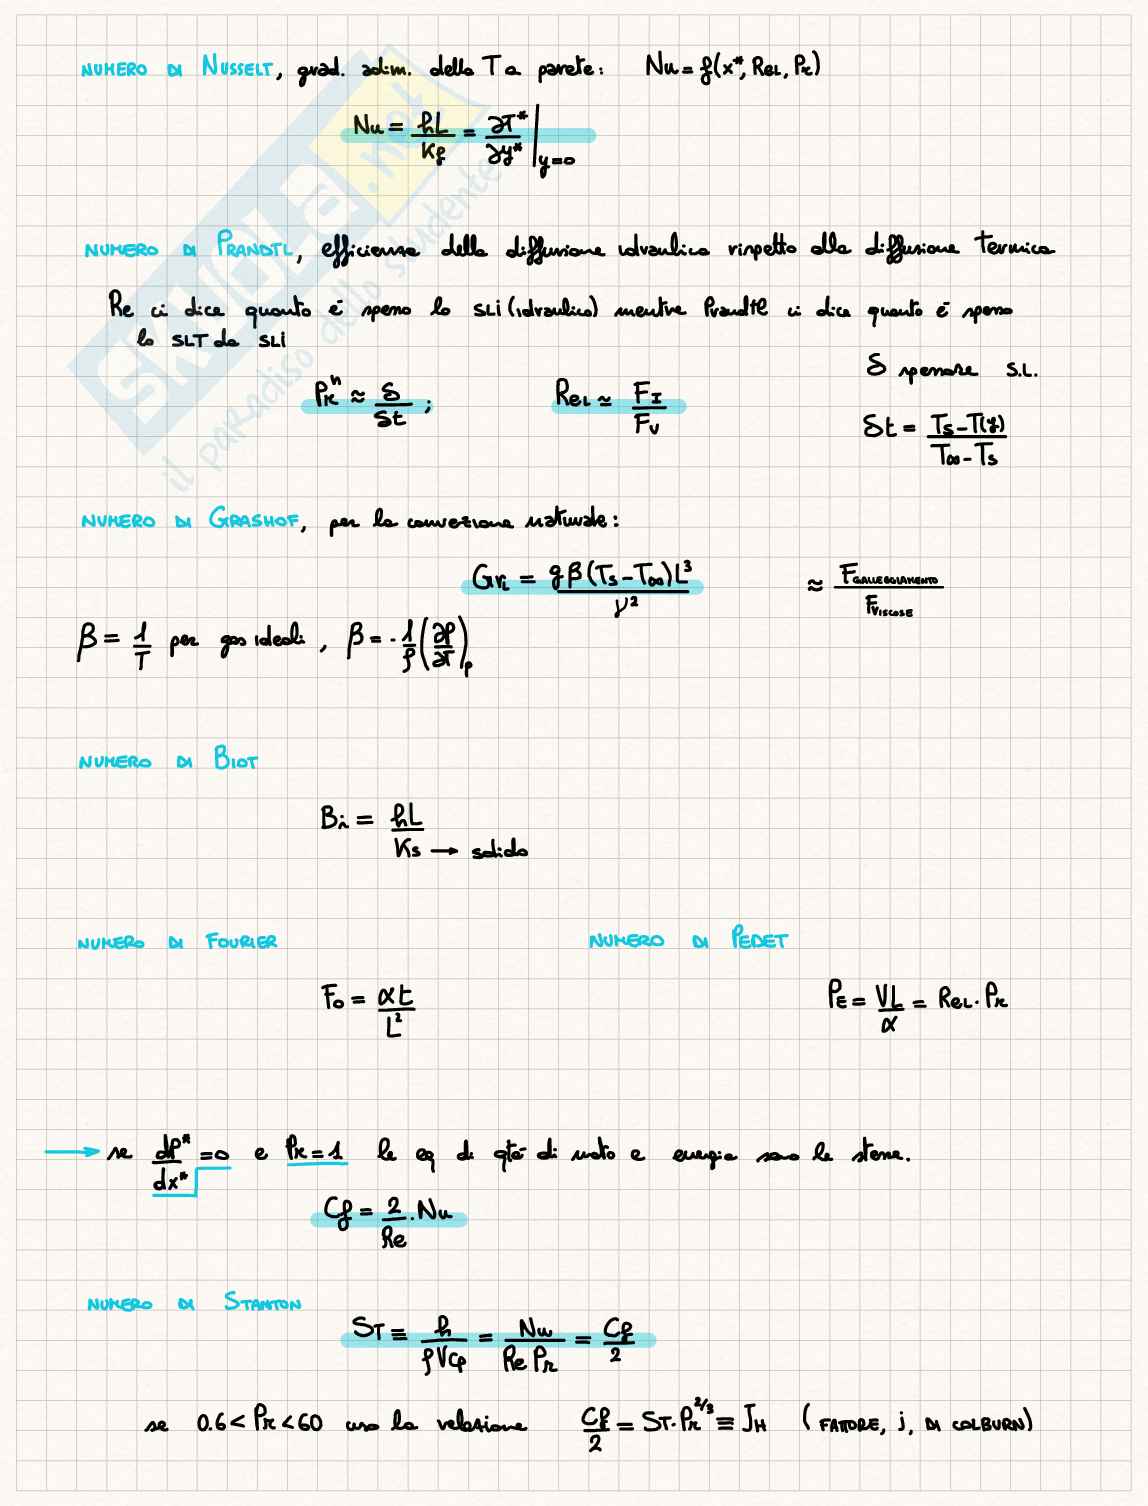 NUMERO DI NUSSELT, grad. adim. della T a parete: Nu = f(x*, ReL, Pr)
Nu = hL/Kf = ∂T*/∂y* |y=0
NUMERO DI PRANDTL, efficienza della diffusione idraulica rispetto alla diffusione termica
Re ci dice quanto è spesso lo SLI (idraulico) mentre Prandtl ci dice quanto è spesso
lo SLT da SLI
δ spessore S.L.
Pr^n ≈ δ/δt ; ReL ≈ FI/Fv
δt = Ts-T(y)/T∞-Ts
NUMERO DI GRASHOF, per la convezione naturale:
GrL = gβ(Ts-T∞)L³/ν² ≈ FGALLEGGIAMENTO/FVISCOSE
β = 1/T per gas ideali, β = -1/ρ(∂ρ/∂T)p
NUMERO DI BIOT
Bi = hL/Ks → solido
NUMERO DI FOURIER NUMERO DI PEDET
Fo = αt/L² PE = VL/α = ReL · Pr
→ se dP*/dx* = 0 e Pr = 1 le eq di qtà di moto e energia sono le stesse.
Cf = 2/Re · Nu
NUMERO DI STANTON
ST ≡ h/ρVcp = Nu/Re Pr = Cf/2
se 0.6 < Pr < 60 uso la relazione Cf/2 = ST·Pr^2/3 ≡ JH (FATTORE, j, DI COLBURN)
SKUOLA.net
il paradiso dello studente